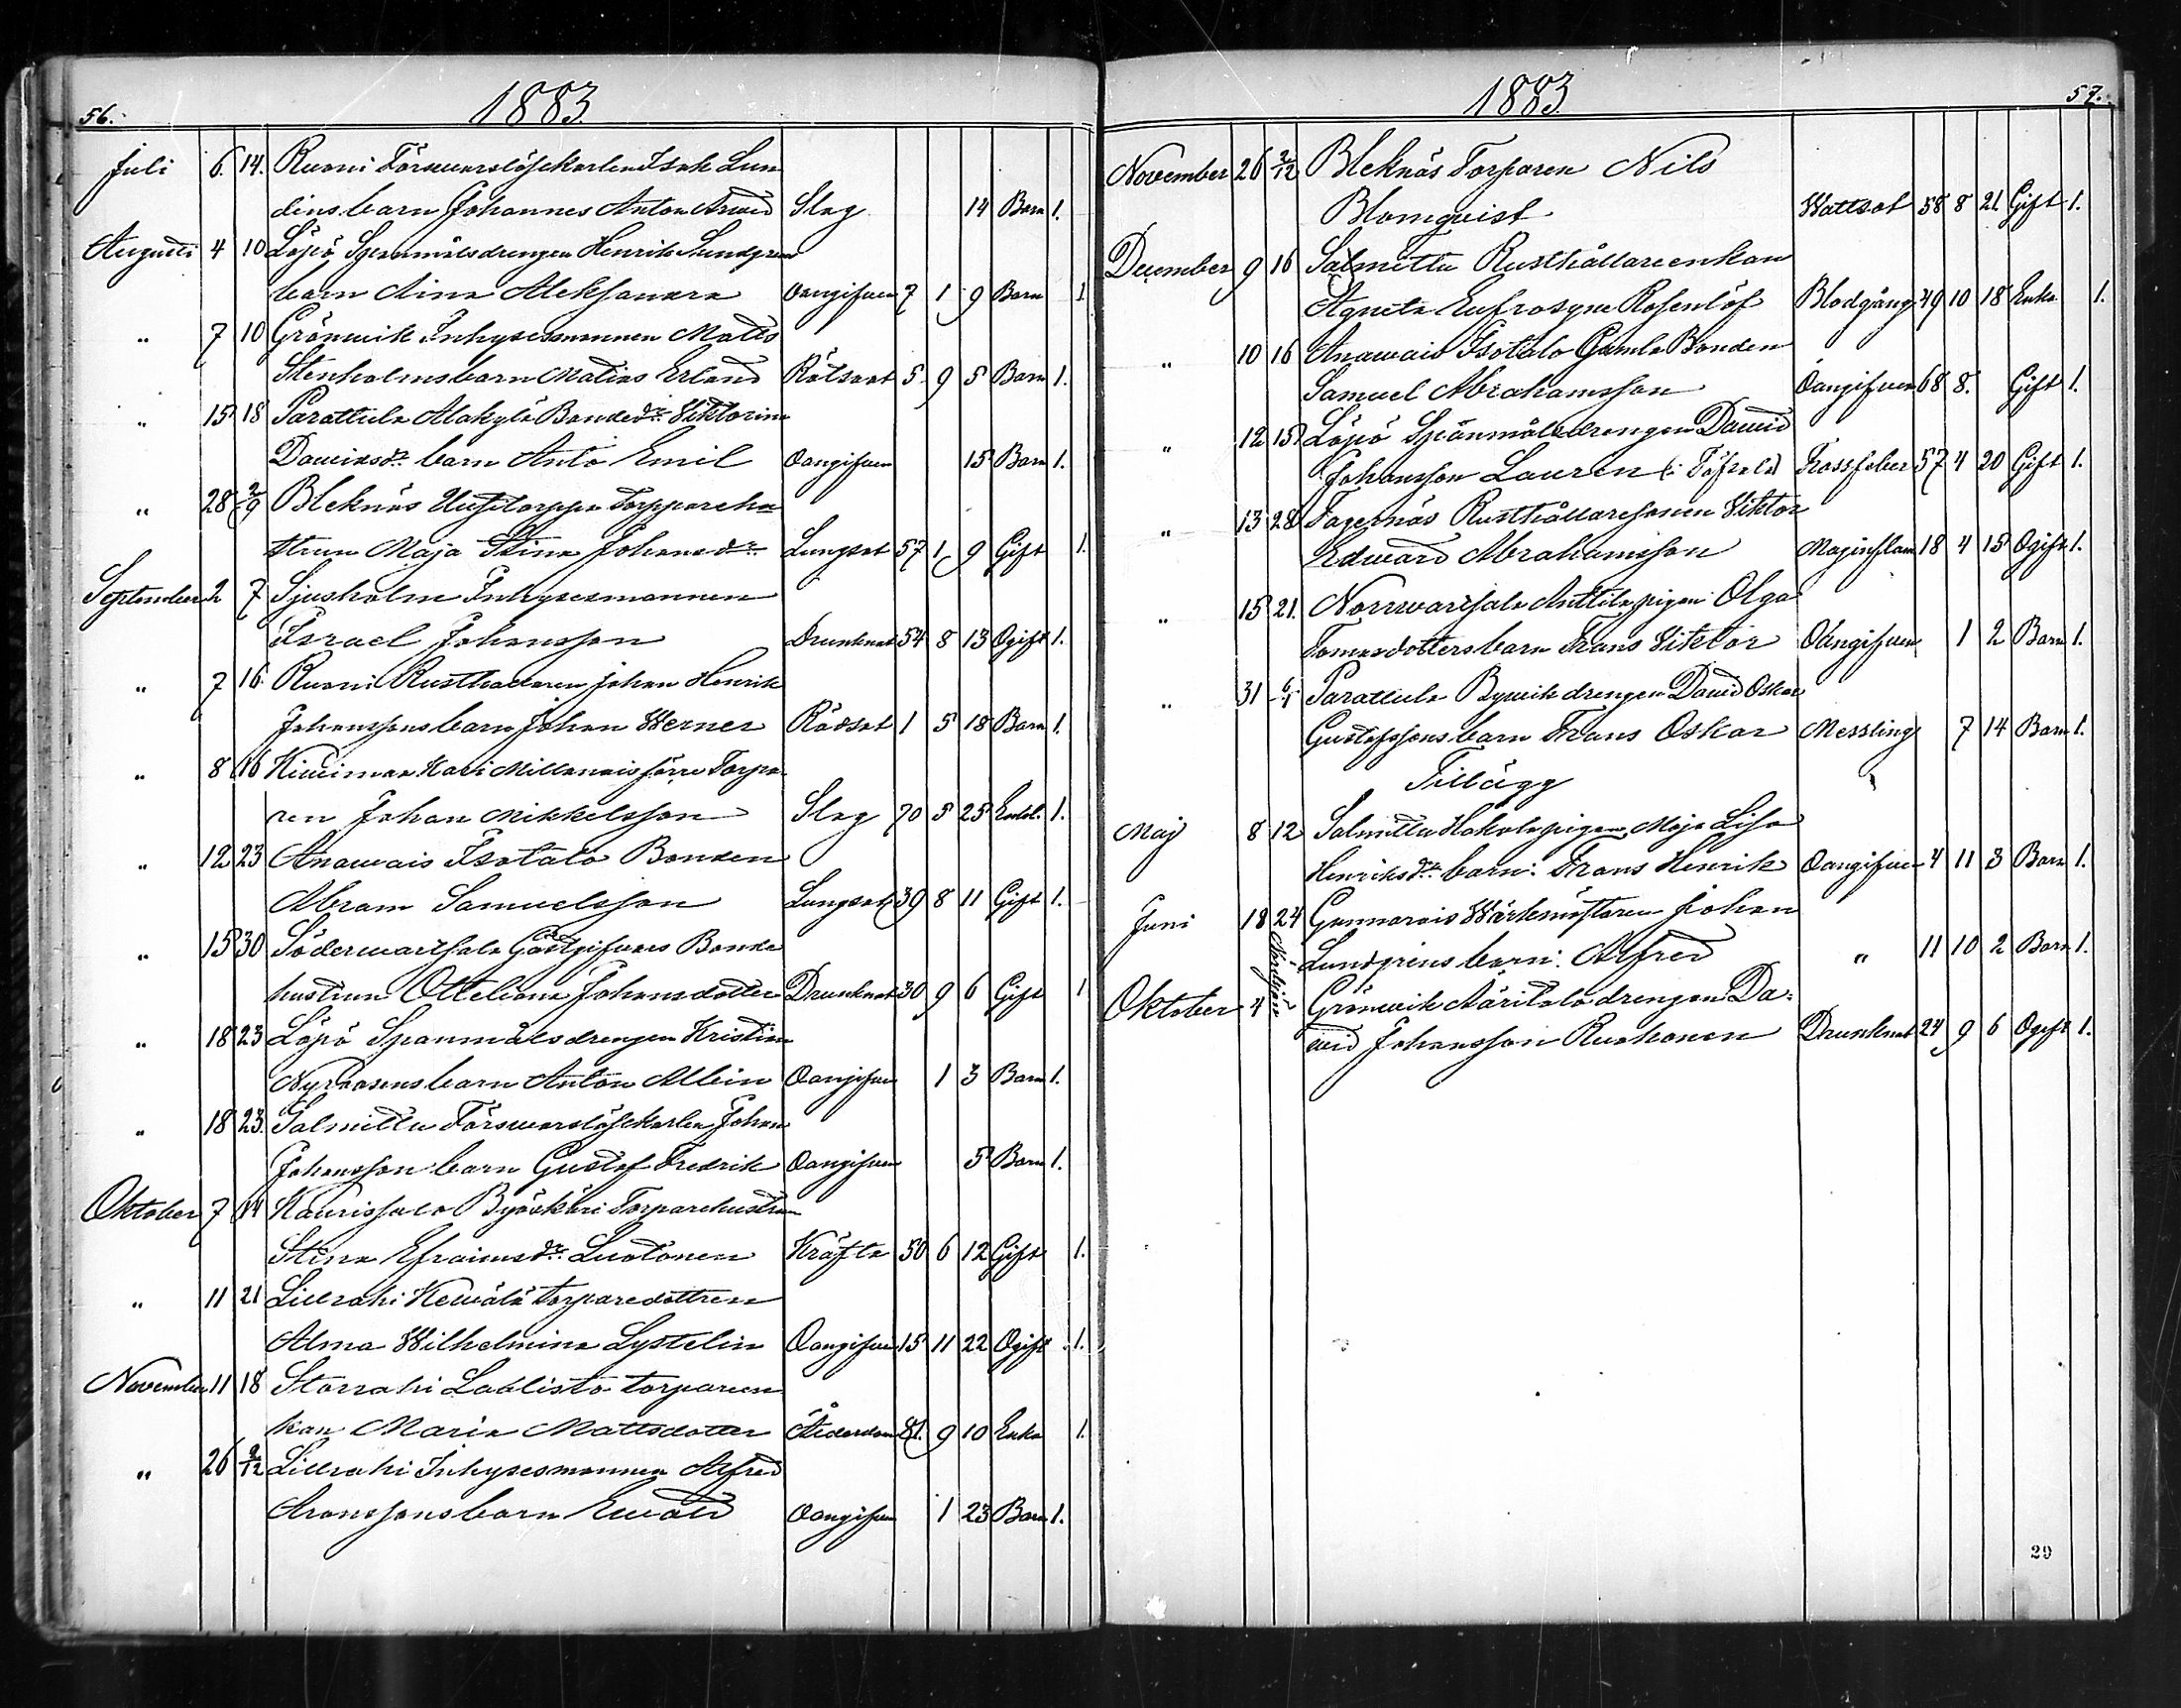 56. 1883.
Juli 6. 14. Ruoni Försvarslösekarlen Isak Lun
dins barn Johannes Anton Arvid Slag 14 Barn 1.
Augusti 4 10 Löpö Spanmålsdrengen Henrik Lundgrens
barn Aina Aleksandra Oangifven 7 1 9 Barn 1
" 7 10 Grönvik Inhysesmannen Matts
Stenholms barn Matias Erland Rötsoot 5 9 5 Barn 1.
" 15 18 Parattula Alakylä Bonded:r Viktorina
Davidsd:r barn Anto Emil Oangifven 15 Barn 1.
" 28 2/9 Bleknäs Uusitorppa Torppareha
strun Maja Stina Johansd:r Lungsot 57 1 9 Gift 1.
September 2 7 Sjusholm Inhysesmannen
Israel Johansson Drunknat 54 8 13 Ogift 1.
" 7 16. Ruoni Rusthållaren Johan Henrik
Johanssons barn Johan Werner Rödsot 1 5 18 Barn 1.
" 8 16 Kivimaa Kari Millanais förre Torpa
ren Johan Mikkelsson Slag 70 5 25 Enkl. 1.
" 12 23 Anavais Isotalo Bonden
Abram Samuelsson Lungsot 39 8 11 Gift 1.
" 15 30 Södervartsala Gästgifvars Bonde
hustrun Otteliana Johansdotter Drunknat 30 9 6 Gift 1
" 18 23 Löpö Spanmålsdrengen Kristian
Nyroosens barn Anton Albin Oangifven 1 3 Barn 1.
" 18 23. Salmittu Försvarslösekarlen Johan
Johansson barn Gustaf Fredrik Oangifven 5 Barn 1.
Oktober 7 14 Haurissalo Byöskäri Torparehustrun
Stina Efraimsd:r Luotonen Kräfta 50 6 12 Gift 1.
" 11 21 Lillrahi Keväla torparedottren
Alma Wilhelmina Lystelin Oangifven 15 11 22 Ogift 1.
November 11 18 Storrahi Laklisto torpareen
kan Maria Mattsdotter Ålderdom 81. 9 10 Enka 1.
" 26 2/12 Lillrahi Inhysesmannen Alfred
Aronssons barn Evald Oangifven 1 23 Barn 1.
1883. 57.
November 26 2/12 Bleknäs Torparen Nils
Blomqvist Wattsot 58 8 21. Gift 1.
December 9 16 Salmittu Rusthållareenkan
Agneta Eufrosyne Rosenlöf Blodgång 49 10 18 Enka 1.
" 10 16 Anavais Isotalo Gamla Bonden
Samuel Abrahamsson Oangifven 68 8. Gift 1.
" 12 15 Löpö Spanmålsdrengen David
Johansson Lauren (i Töfsala) Frossfeber 57 4 20 Gift 1.
" 13 28 Fagernäs Rusthållaresonen Viktor
Edward Abrahamsson Maginflam 18 4 15 Ogift 1.
" 15 21. Norrvartsala Anttila pigan Olga
Tomasdotters barn Frans Viktor Oangifven 1 2 Barn 1.
" 31 6/1 Parattula Byvik drengen David Oskar
Gustafssons barn Frans Oskar Messling 7 14 Barn 1.
Tillägg
Maj 8 12 Salmittu Hakola pigan Maja Lisa
Henriksd:r barn: Frans Henrik Oangifven 4 11 3 Barn 1.
Juni 18 24 Gunnarais Wärkmästaren Johan
Lundgrens barn: Alfred " 11 10 2 Barn 1.
Oktober 4 Grönvik Ääritalo drengen Da-
vid Johansson Ruohonen Drunknat 24 9 6 Ogift 1.
29